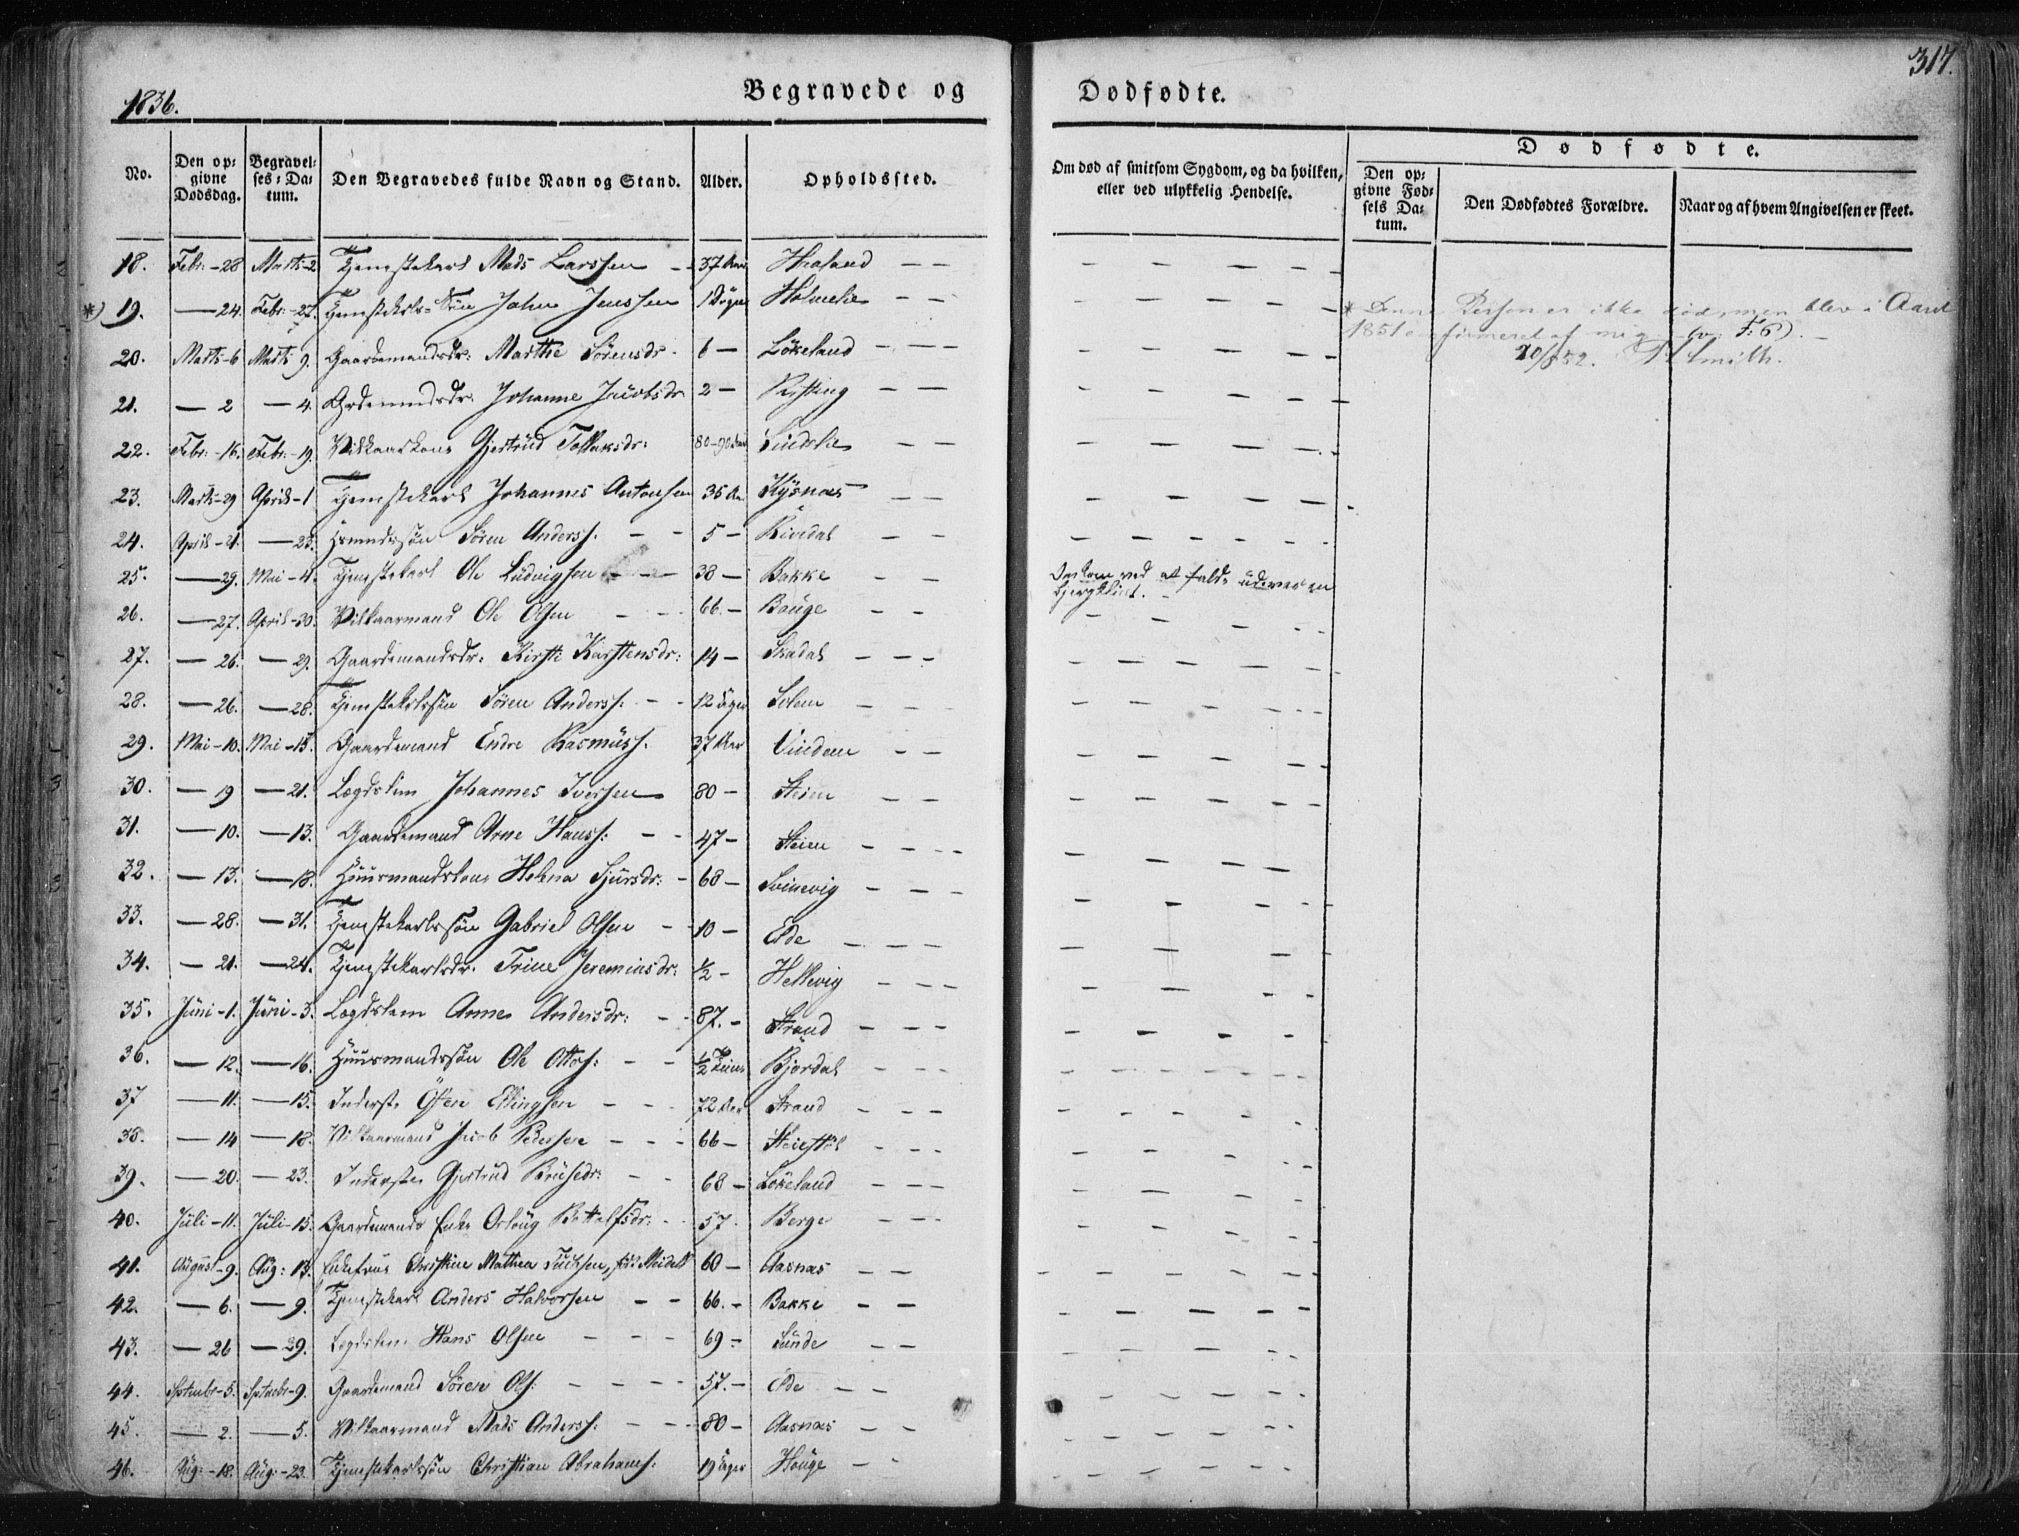 1836.
Begravede og
Dødfødte.
317.
No.
Den op-
givne
Dødsdag.
Begravel-
ses-Da-
tum.
Den Begravedes fulde Navn og Stand.
Alder.
Opholdssted.
Om død af smitsom Sygdom, og da hvilken,
eller ved ulykkelig Hendelse.
Dødfødte.
Den op-
givne Fød-
sels Da-
tum.
Den Dødfødtes Forældre.
Naar og af hvem Angivelsen er skeet.
18. Febr. - 28 Marts - 2 Tjenstekarl Mads Larssen - 37 Aar
*) 19. — 24. Febr. - 27. Tjenstekls Søn Johan Jenssen 1 Døgn Holmelie - -
* Denne Person er ikke død, men blev i Aaret
1851 confirmeret af mig F. 6). -
20/8 52. Smith.
20. Marts - 6 Marts 9. Gaardemandsdr: Marthe Sørensdr - 6 - Løkeland - - -
21. — 2 — 4. Grdemndsdr. Johanne Jacobsdr 2 - Rysting - -
22. Febr. - 16. Febr. - 19. Vilkaarskone Gjertrud 80-90 Aar
23. Marts - 29 April - 1 Tjenstekarl Johannes Antonsen 35 Aar Kysnæs - -
24. April - 21. — 23. Hsmndssøn Søren Anderss. - - 5 - Rivedal - -
25. — 29. Mai - 4. Tjenstekarl Ole Ludvigsen - - 38 - Bakke - -
Omkom ved at falde ud over en
Bjergklint. -
26. — 27. April - 30. Vilkaarmand Ole Olsen - - 66 - Bauge - -
27. — 26. — 29. Gaardemandsdr: Kirsti Karstensdr: 14 - Skadal - - -
28. — 26. — 28. Tjenstekarlssøn Søren Anderss: - - 12 Uger Solem - - -
29. Mai - 10. Mai - 15. Gaardemand Endre Rasmuss. 37 Aar Vindem - -
30. — 19 — 21. Lægdslem Johannes Iversen 80 - Steien - -
31. — 10. — 13. Gaardemand Arne Hanss: - - 47 - Steien - - - -
32. — 13. — 18. Huusmandskone Helena Sjursdr: - 68 - Svinevig - - -
33. — 28. — 31. Tjenstekarlssøn Gabriel Olsen - - 10 - Eide - - -
34. — 21. — 24. Tjenstekarlsdr. Trine Jeremiasdr: ½ - Hellevig - - -
35. Juni - 1. Juni - 3. Lægdslem Anne Andersdr: - - 87. - Strand - - -
36. — 12. — 16. Huusmandssøn Ole Ottos: - - ½ Time Bjordal - - -
37 — 11. — 15. Inderste Osten Ellingsen - - 72 Aar Strand - - -
38. — 14 — 18. Vilkaarmand Jacob Pedersen - - - 66 - - - -
39. — 20. — 23. Inderste Gjertrud - - 68 - Løkeland - - -
40. Juli - 11. Juli - 15. Gaardemands Enke Botolfsdr: - - 57. Berge - - -
41. August - 9. Aug: 13. Enkefrue Christine Mathea Meidell 60 - Aasnæs - -
42. — 6. — 9. Tjenstekarl Anders Halvorsen - - 66. - Bakke - -
43. — 26 — 29. Lægdslem Hans Olsen - - - 69 - Sunde - -
44. Septmbr - 5. Septmbr - 9. Gaardemand Søren Ols: - - - - 57. - Eide - -
45. — 2. — 5. Vilkaarmand Mads Anderss: - - - 80 - Aasnæs - -
46. Aug: - 18. Aug: - 23. Tjenstekarlssøn Christian Abrahams: 19 Uger Hauge - -